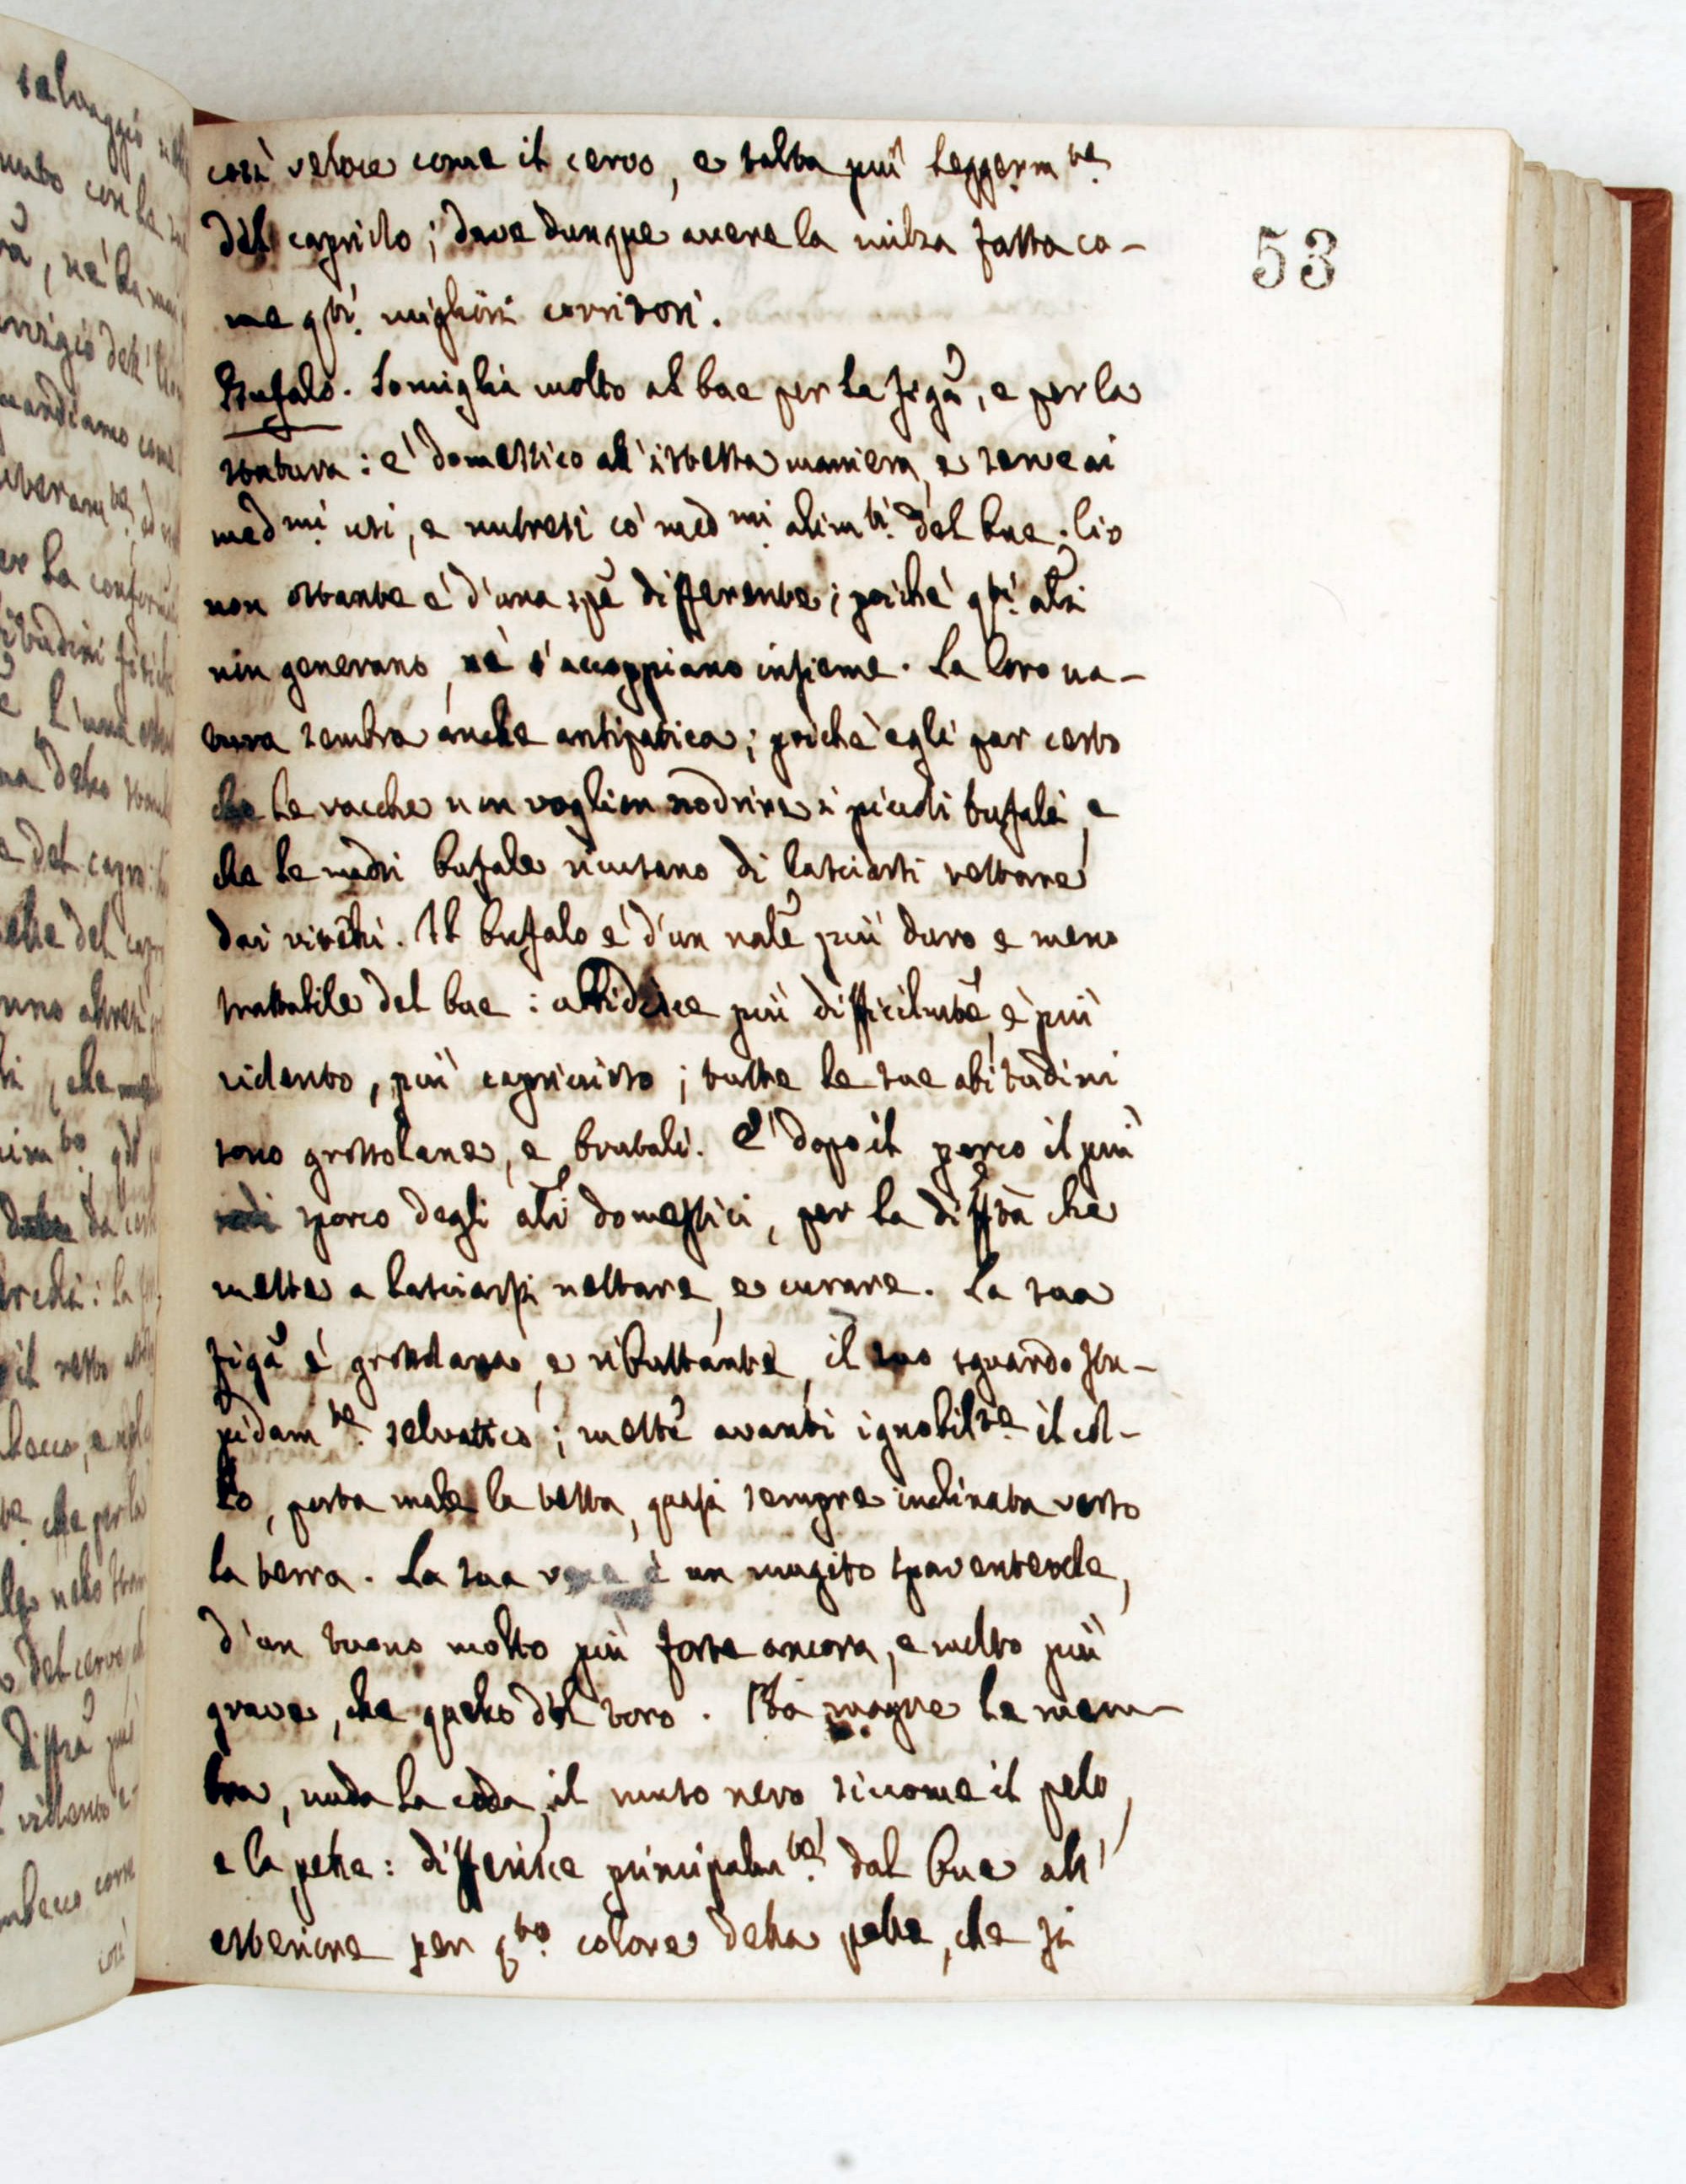 così veloce come il cervo, e salta più leggerm.te
del capriolo; deve dunque avere la milza fatta co-
me q.sti migliori corridori.
53
Bufalo. Somiglia molto al bue per la figã, e per la
statura: è domestico all'istessa maniera, e serve ai
med.mi usi, e nutresi co' med.mi alim.ti del bue. Ciò
non ostante è d'una spẽ differente; poichè q.sti alĩ
non generano, nè s'accoppiano insieme. La loro na-
tura sembra anche antipatica; poichè egli par certo
che le vacche non voglion nodrire i piccoli bufali, e
che le madri bufale ricusano di lasciarsi tettare
dai vitelli. Il bufalo è d'un nalẽ più duro e meno
trattabile del bue: obbidisce più difficilmtẽ, è più
violento, più capriccioso; tutte le sue abitudini
sono grossolane, e brutali. E' dopo il porco il più
sporco degli alĩ domestici, per la difftà che
mette a lasciarsi nettare, e curare. La sua
figã è grossolana, e ributtante, il suo sguardo stu-
pidam.te selvatico; mette avanti ignobil.te il col-
lo, porta male la testa, quasi sempre inclinata verso
la terra. La sua voce è un mugito spaventevole,
d'un tuono molto più forte ancora, e molto più
grave, che quello del toro. Ha magre le mem-
bra, nuda la coda, il muso nero siccome il pelo,
e la pelle: differisce principalm.te dal bue all'
esteriore per q.sto colore della pelle, che si